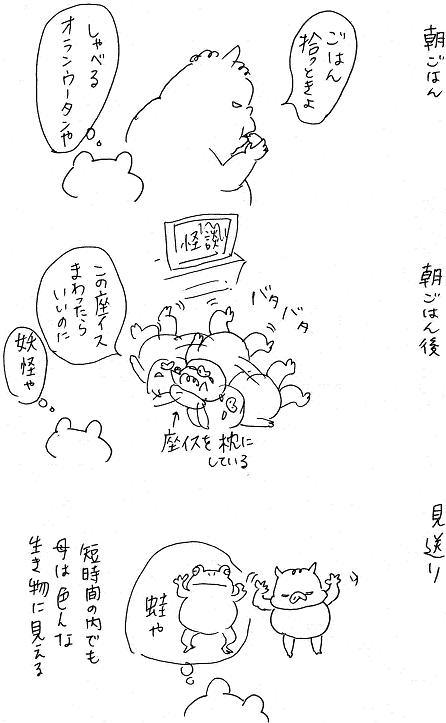 朝ごはん
ごはん
拾っときよ
しゃべる
オランウータンや
朝ごはん後
怪談
バタバタ
この座イス
まわったら
いいのに
妖怪や
座イスを枕に
している
見送り
蛙や
短時間の内でも
母は色んな
生き物に見える